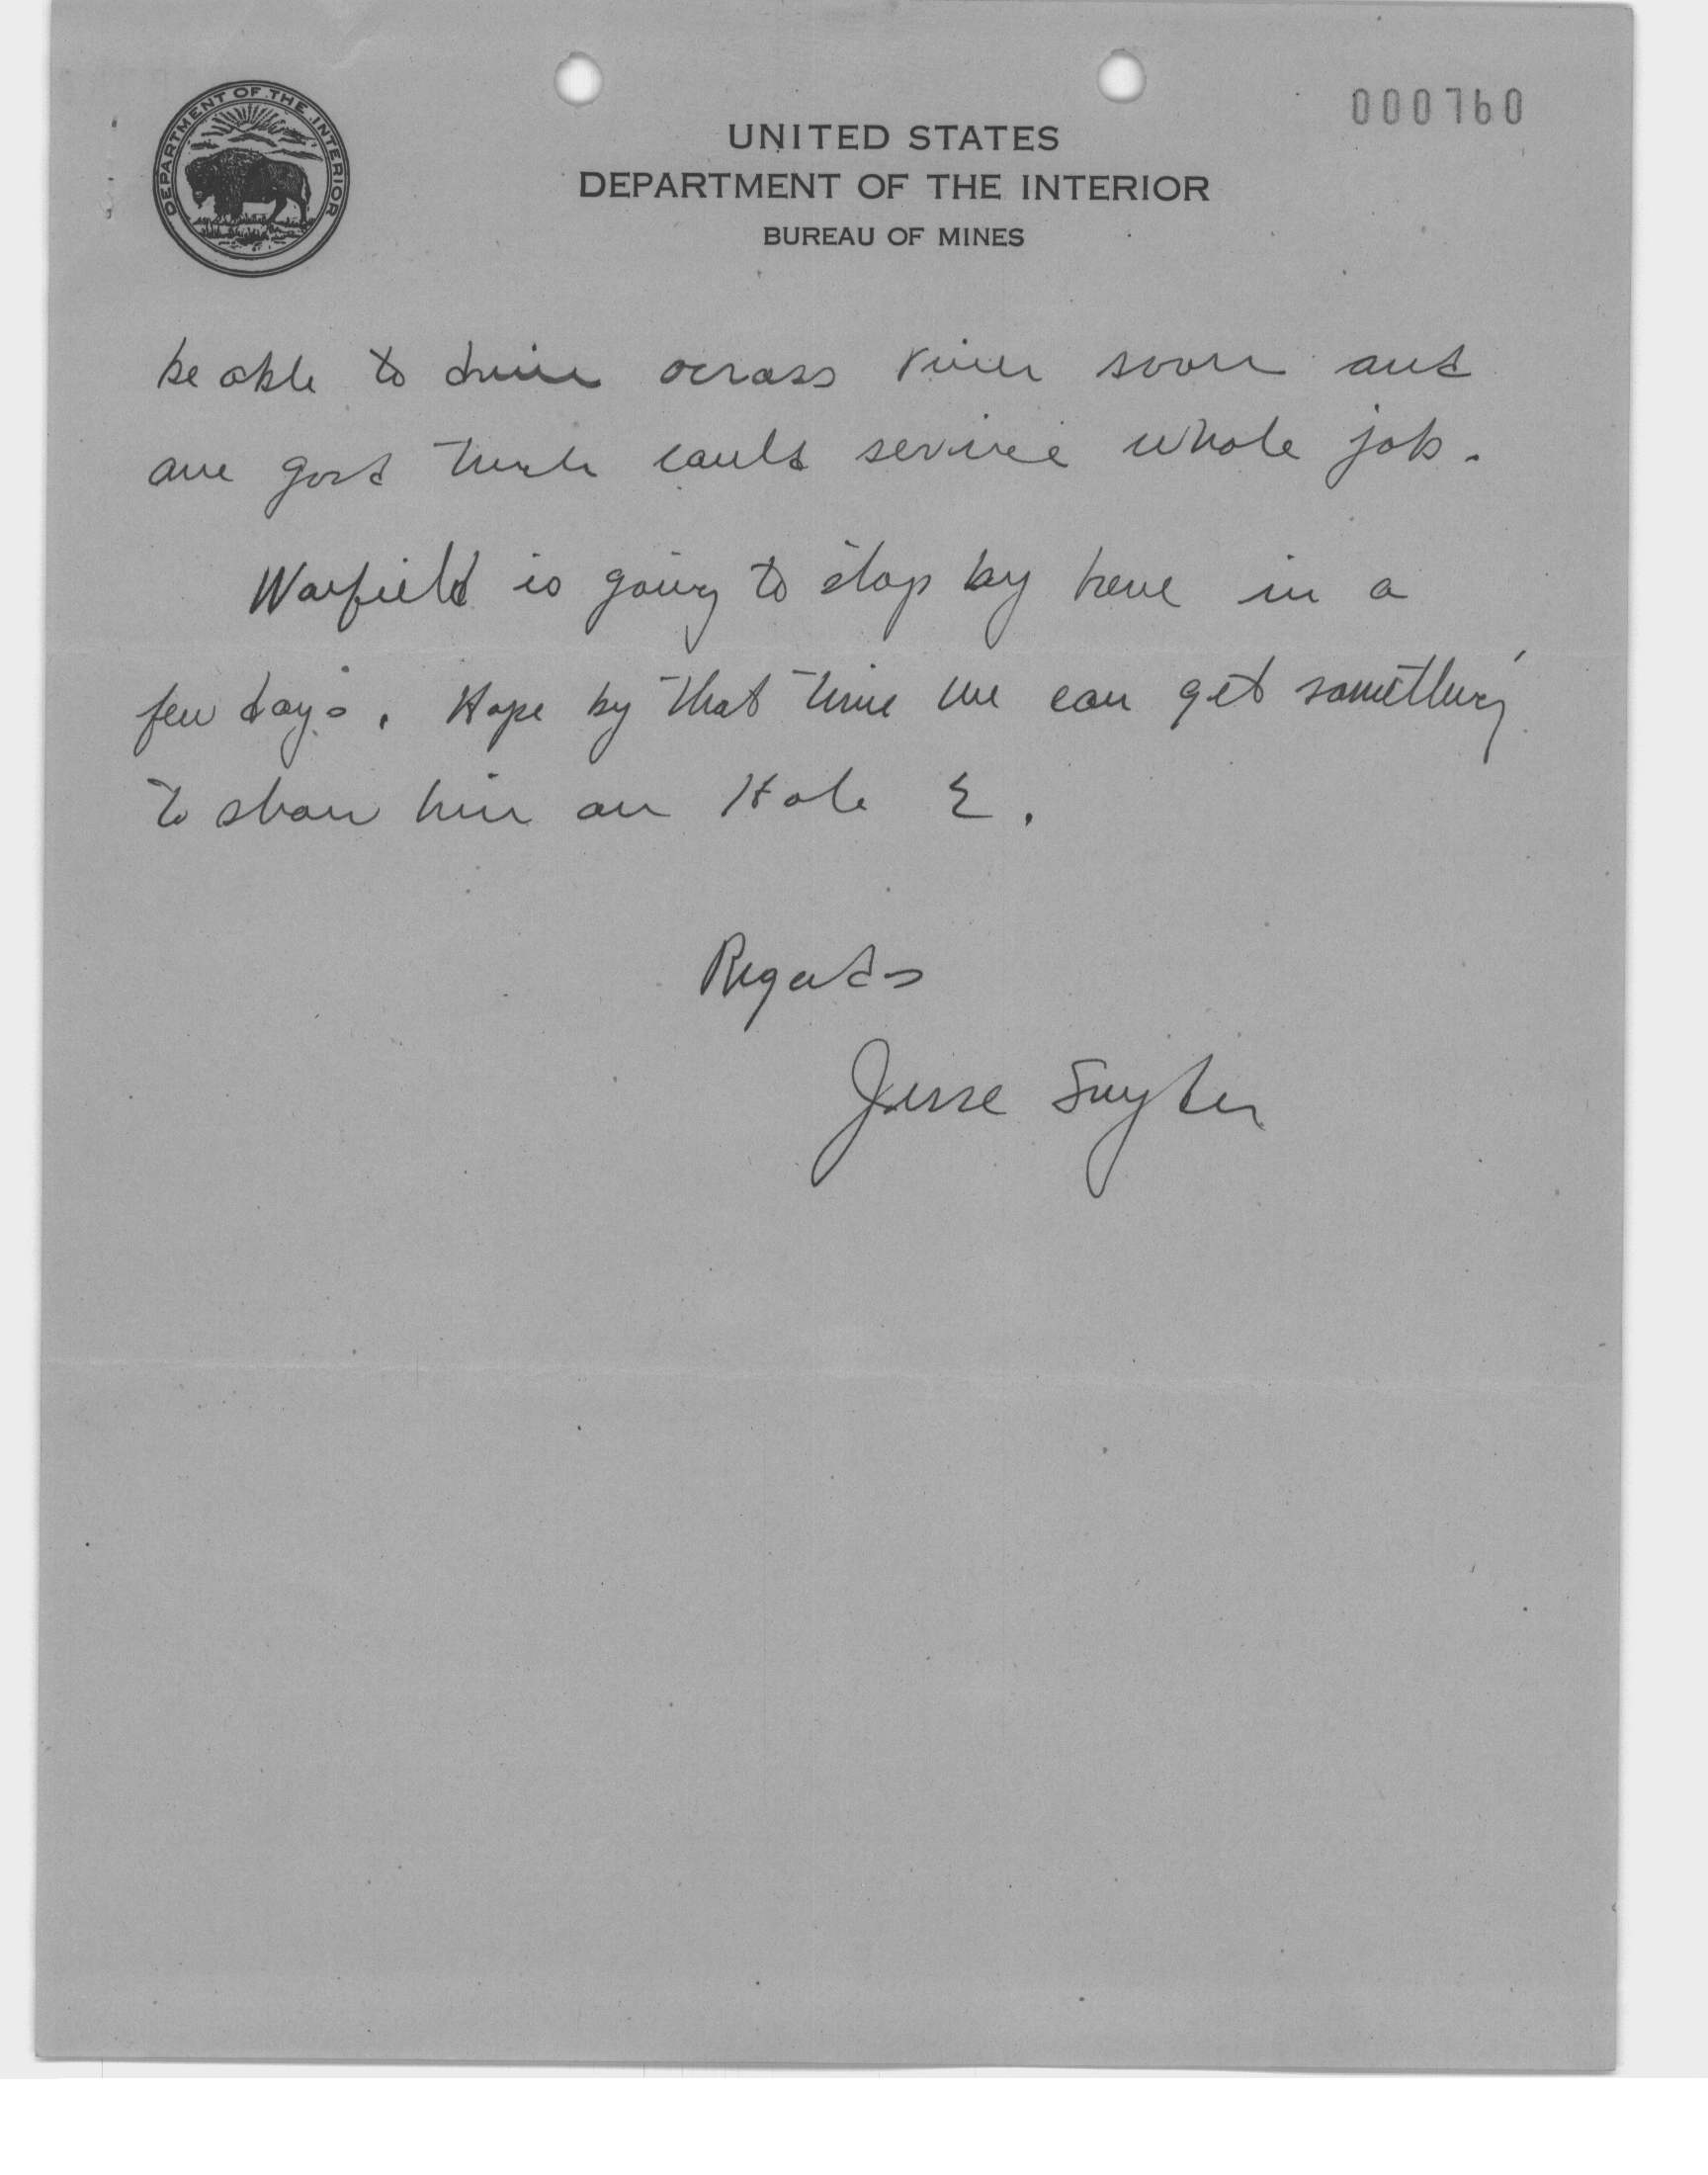 DEPARTMENT OF THE INTERIOR
000760
UNITED STATES
DEPARTMENT OF THE INTERIOR
BUREAU OF MINES
be able to drive across river soon and
one good truck could service whole job.
Warfield is going to stop by here in a
few days. Hope by that time we can get something
to show him on Hole E.
Regards
Jesse Snyder